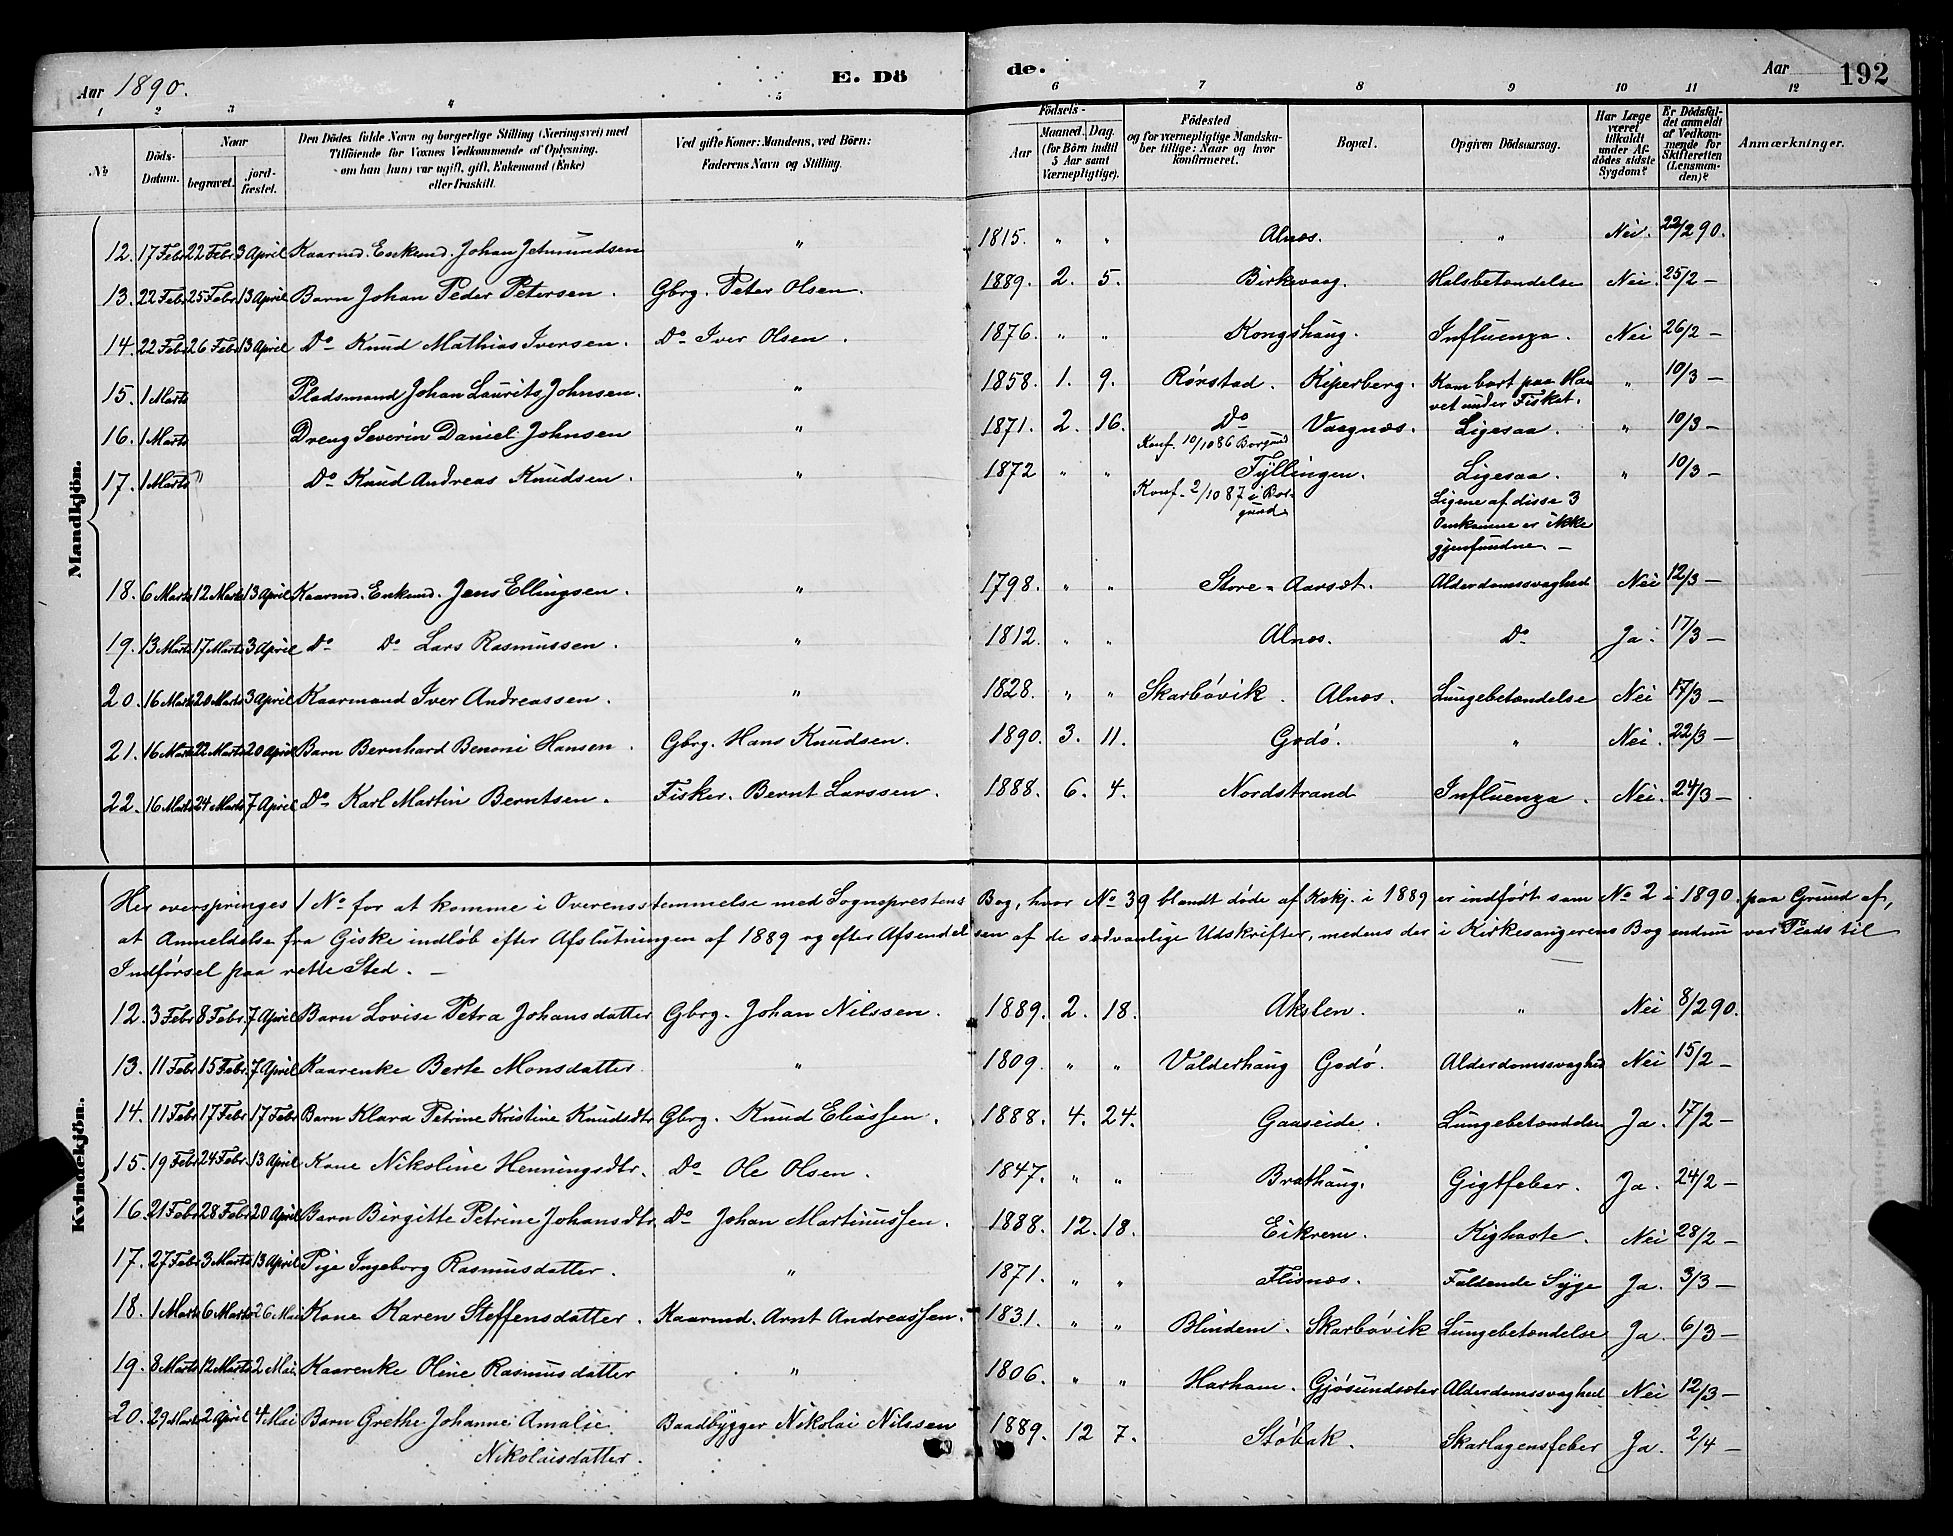 Aar 1890. E. Dö de. Aar 192
1 2 3 4 5 6 7 8 9 10 11 12
№ Döds-Datum. Naar begravet. jord-fæstet. Den Dödes fulde Navn og borgerlige Stilling (Næringsvei) med Tilföiende for Voxnes Vedkommende af Oplysning, om han (hun) var ugift, gift, Enkemand (Enke) eller fraskilt. Ved gifte Koner: Mandens, ved Börn: Faderens Navn og Stilling. Födsels- Aar Maaned. Dag. (for Börn indtil 5 Aar samt Værnepligtige). Födested og for værnepligtige Mandskaber tillige: Naar og hvor konfirmeret. Bopæl. Opgiven Dödsaarsag. Har Læge været tilkaldt under Afdödes sidste Sygdom? Er Dödsfaldet anmeldt af Vedkommende for Skifteretten (Lensmanden)? Anmærkninger.
Mandkjön.
12. 17 Febr 22 Febr. 3 April Kaarmd. Enkemd. Johan Jetmundsen " 1815. " " Alnæs. " Nei. 22/2 90.
13. 22 Febr 25 Febr. 13 April Barn Johan Peder Petersen. Gbrg. Peter Olsen. 1889. 2. 5. Birkevaag. Halsbetændelse Nei. 25/2 –
14. 22 Febr 26 Febr 13 April Do Knud Mathias Iversen. Do Iver Olsen. 1876. " " Kongshaug. Influenza. Nei 26/2 –
15. 1 Marts Pladsmand Johan Laurits Johnsen. " 1858. 1. 9. Rørstad. Kiperberg. Kom bort paa Ha-
vet under Fisket. " 10/3 –
16. 1 Marts Dreng Severin Daniel Johnsen " 1871. 2. 16. Do Vaagnæs. Ligesaa. " 10/3 –
Konf. 10/10 86 Borgund
17. 1 Marts Do Knud Andreas Knudsen. " 1872 " " Tyllingen. Ligesaa. " 10/3 –
Konf. 2/10 87 i Bor-
gund.
Ligene af disse 3
Omkomne er ikke
gjenfundne. –
18. 6 Marts 12 Marts 13 April Kaarmd. Enkemd. Jens Ellingsen. " 1798. " " Store-Aarsæt. Alderdomssvaghed Nei 12/3 –
19. 13 Marts 17 Marts 3 April Do Do Lars Rasmussen. " 1812. " " Alnæs. Do Ja. 17/3 –
20. 16 Marts 20 Marts 3 April Kaarmand Iver Andreassen. " 1828. " " Skarbøvik. Alnæs. Lungebetændelse Nei 17/3 –
21. 16 Marts 22 Marts 20 April Barn Bernhard Benoni Hansen. Gbrg. Hans Knudsen. 1890. 3. 11. Godø. " Nei. 22/3 –
22. 16 Marts 24 Marts 7 April Do Karl Martin Berntsen. Fisker. Bernt Larssen. 1888. 6. 4. Nordstrand Influenza. Nei. 24/3 –
Kvindekjön.
Her overspringes 1 No for at komme i Overensstemmelse med Sogneprestens Bog, hvor No 39 blandt døde af Kvkj. i 1889 er indført som No 2 i 1890 paa Grund af,
at Anmeldelse fra Giske indløb efter Afslutningen af 1889 og efter Afsendelsen af de sædvanlige Udskrifter, medens der i Kirkesangerens Bog endnu var Plads til
Indførsel paa rette Sted. –
12. 3 Febr 8 Febr. 7 April Barn Lovise Petra Johansdatter Gbrg. Johan Nilssen. 1889. 2. 18. Akslen. " Nei 8/2 90.
13. 11 Febr 15 Febr. 7 April Kaarenke Berte Monsdatter " 1809. " " Valderhaug Godø. Alderdomssvaghed Nei 15/2 –
14. 11 Febr 17 Febr 17 Febr Barn Klara Petrine Kristine Knudsdtr Gbrg. Knud Eliassen. 1888. 4. 24. Gaaseide. Lungebetændelse Ja. 17/2 –
15. 19 Febr 24 Febr. 13 April Kone Nikoline Henningsdtr. Do Ole Olsen. 1847. " " Brathaug. Gigtfeber. Ja. 24/2 –
16. 21 Febr 28 Febr 20 April Barn Birgitte Petrine Johansdtr. Do Johan Martinussen. 1888. 12. 18. Eikrem. Kighoste. Nei 28/2 –
17. 27 Febr 3 Marts 13 April Pige Ingeborg Rasmusdatter. " 1871. " " Flisnæs. Faldende Syge Ja. 3/3 –
18. 1 Marts 6 Marts 26 Mai Kone Karen Steffensdatter. Kaarmd. Arnt Andreassen. 1831. " " Blindem. Skarbøvik Lungebetændelse Ja. 6/3 –
19. 8 Marts 12 Marts 2 Mai Kaarenke Oline Rasmusdatter " 1806. " " Harham. Gjøsundsæter Alderdomssvaghed Nei 12/3 –
20. 29 Marts 2 April 4 Mai Barn Grethe Johanne Amalie Baadbygger Nikolai Nilssen 1889. 12 7. Støbak. Skarlagensfeber Ja. 2/4 –
Nikolaisdatter.